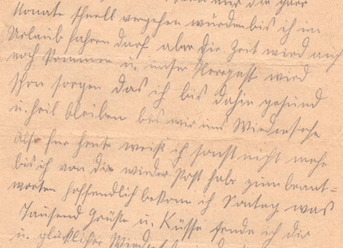 Monate schnell vergehen würden bis ich in
Urlaub fahren darf aber die Zeit wird auch
noch kommen u. unser Herrgott wird
schon sorgen das ich bis dahin gesund
u. heil bleiben bis wir uns Wiedersehe
Also für heute weiß ich sonst nicht mehr
bis ich von dir wieder Post habe zum beant-
worten hoffendlich bekome ich Sontag was
Tausend Grüße u. Küsse sende ich dir
u. glückliches